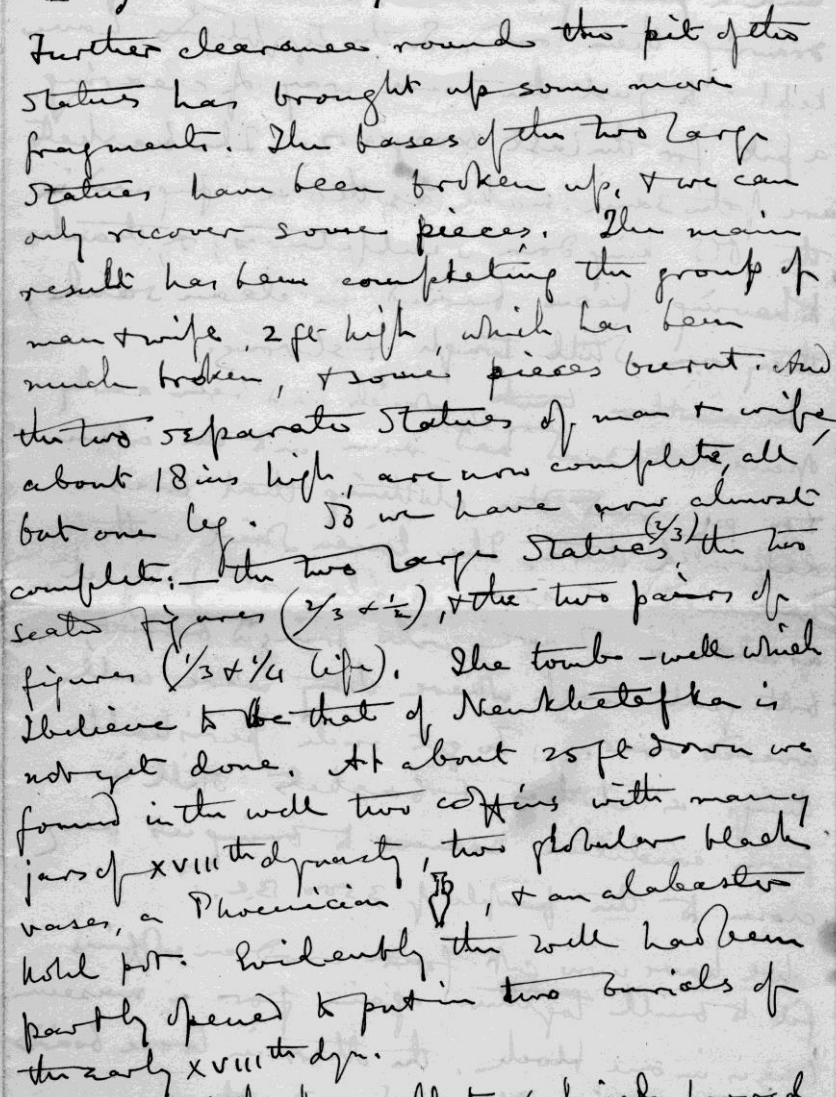 Further clearance round the pit of the
statues has brought up some more
fragments. The bases of the two large
statues have been broken up, & we can
only recover some pieces. The main
result has been completing the group of
man & wife, 2 ft high, which has been
much broken, & some pieces burnt. And
the two separate statues of man & wife,
about 18 ins high, are now complete, all
but one leg. So we have now almost
complete:— the two large statues (2/3), the two
seated figures (2/3 & ½), & the two pairs of
figures (1/3 & 1/4 life). The tomb-well which
I believe to be that of Nenkhetefka is
not yet done. At about 25 ft down we
found in the well two coffins with many
jars of XVIIIth dynasty, two globular black
vases, a Phoenician , & an alabaster
kohl pot. Evidently the well had been
partly opened to put in two burials of
the early XVIIIth dyn.